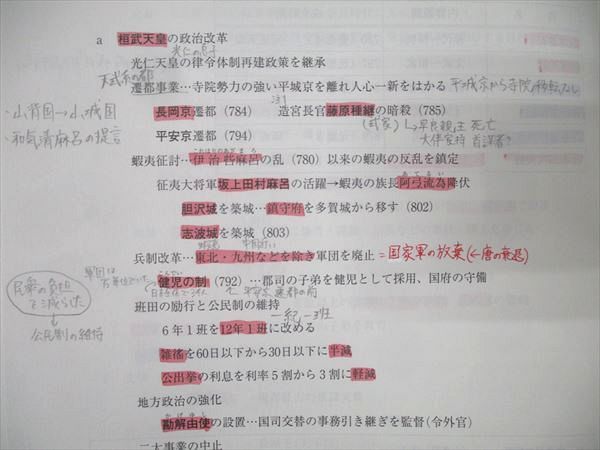 a 桓武天皇の政治改革
光仁の息子
光仁天皇の律令体制再建政策を継承
天武系の都
遷都事業…寺院勢力の強い平城京を離れ人心一新をはかる 平城京から寺院移転なし
・山背国→山城国
長岡京遷都（784） 造宮長官藤原種継の暗殺（785）
・和気清麻呂の提言
（式家）→早良親王 死亡
平安京遷都（794）
大伴家持 首謀者?
蝦夷征討…伊治呰麻呂の乱（780）以来の蝦夷の反乱を鎮定
征夷大将軍坂上田村麻呂の活躍→蝦夷の族長阿弖流為降伏
胆沢城を築城…鎮守府を多賀城から移す（802）
志波城を築城（803）
兵制改革…東北・九州などを除き軍団を廃止 =国家軍の放棄(←唐の衰退)
軍団は
健児の制（792）…郡司の子弟を健児として採用、国府の守備
民衆の負担
を減らした
平安京遷都の前
公民制の維持
班田の励行と公民制の維持
一紀一班
6年1班を12年1班に改める
雑徭を60日以下から30日以下に半減
公出挙の利息を利率5割から3割に軽減
地方政治の強化
かげゆし
勘解由使の設置…国司交替の事務引き継ぎを監督（令外官）
二大事業の中止